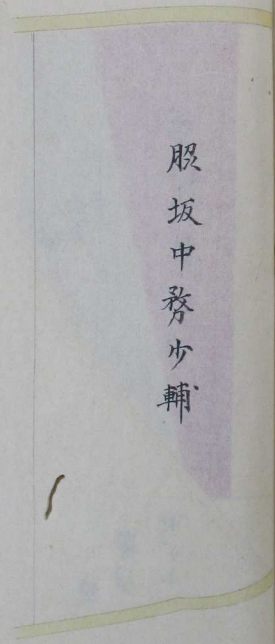 脇坂中務少輔